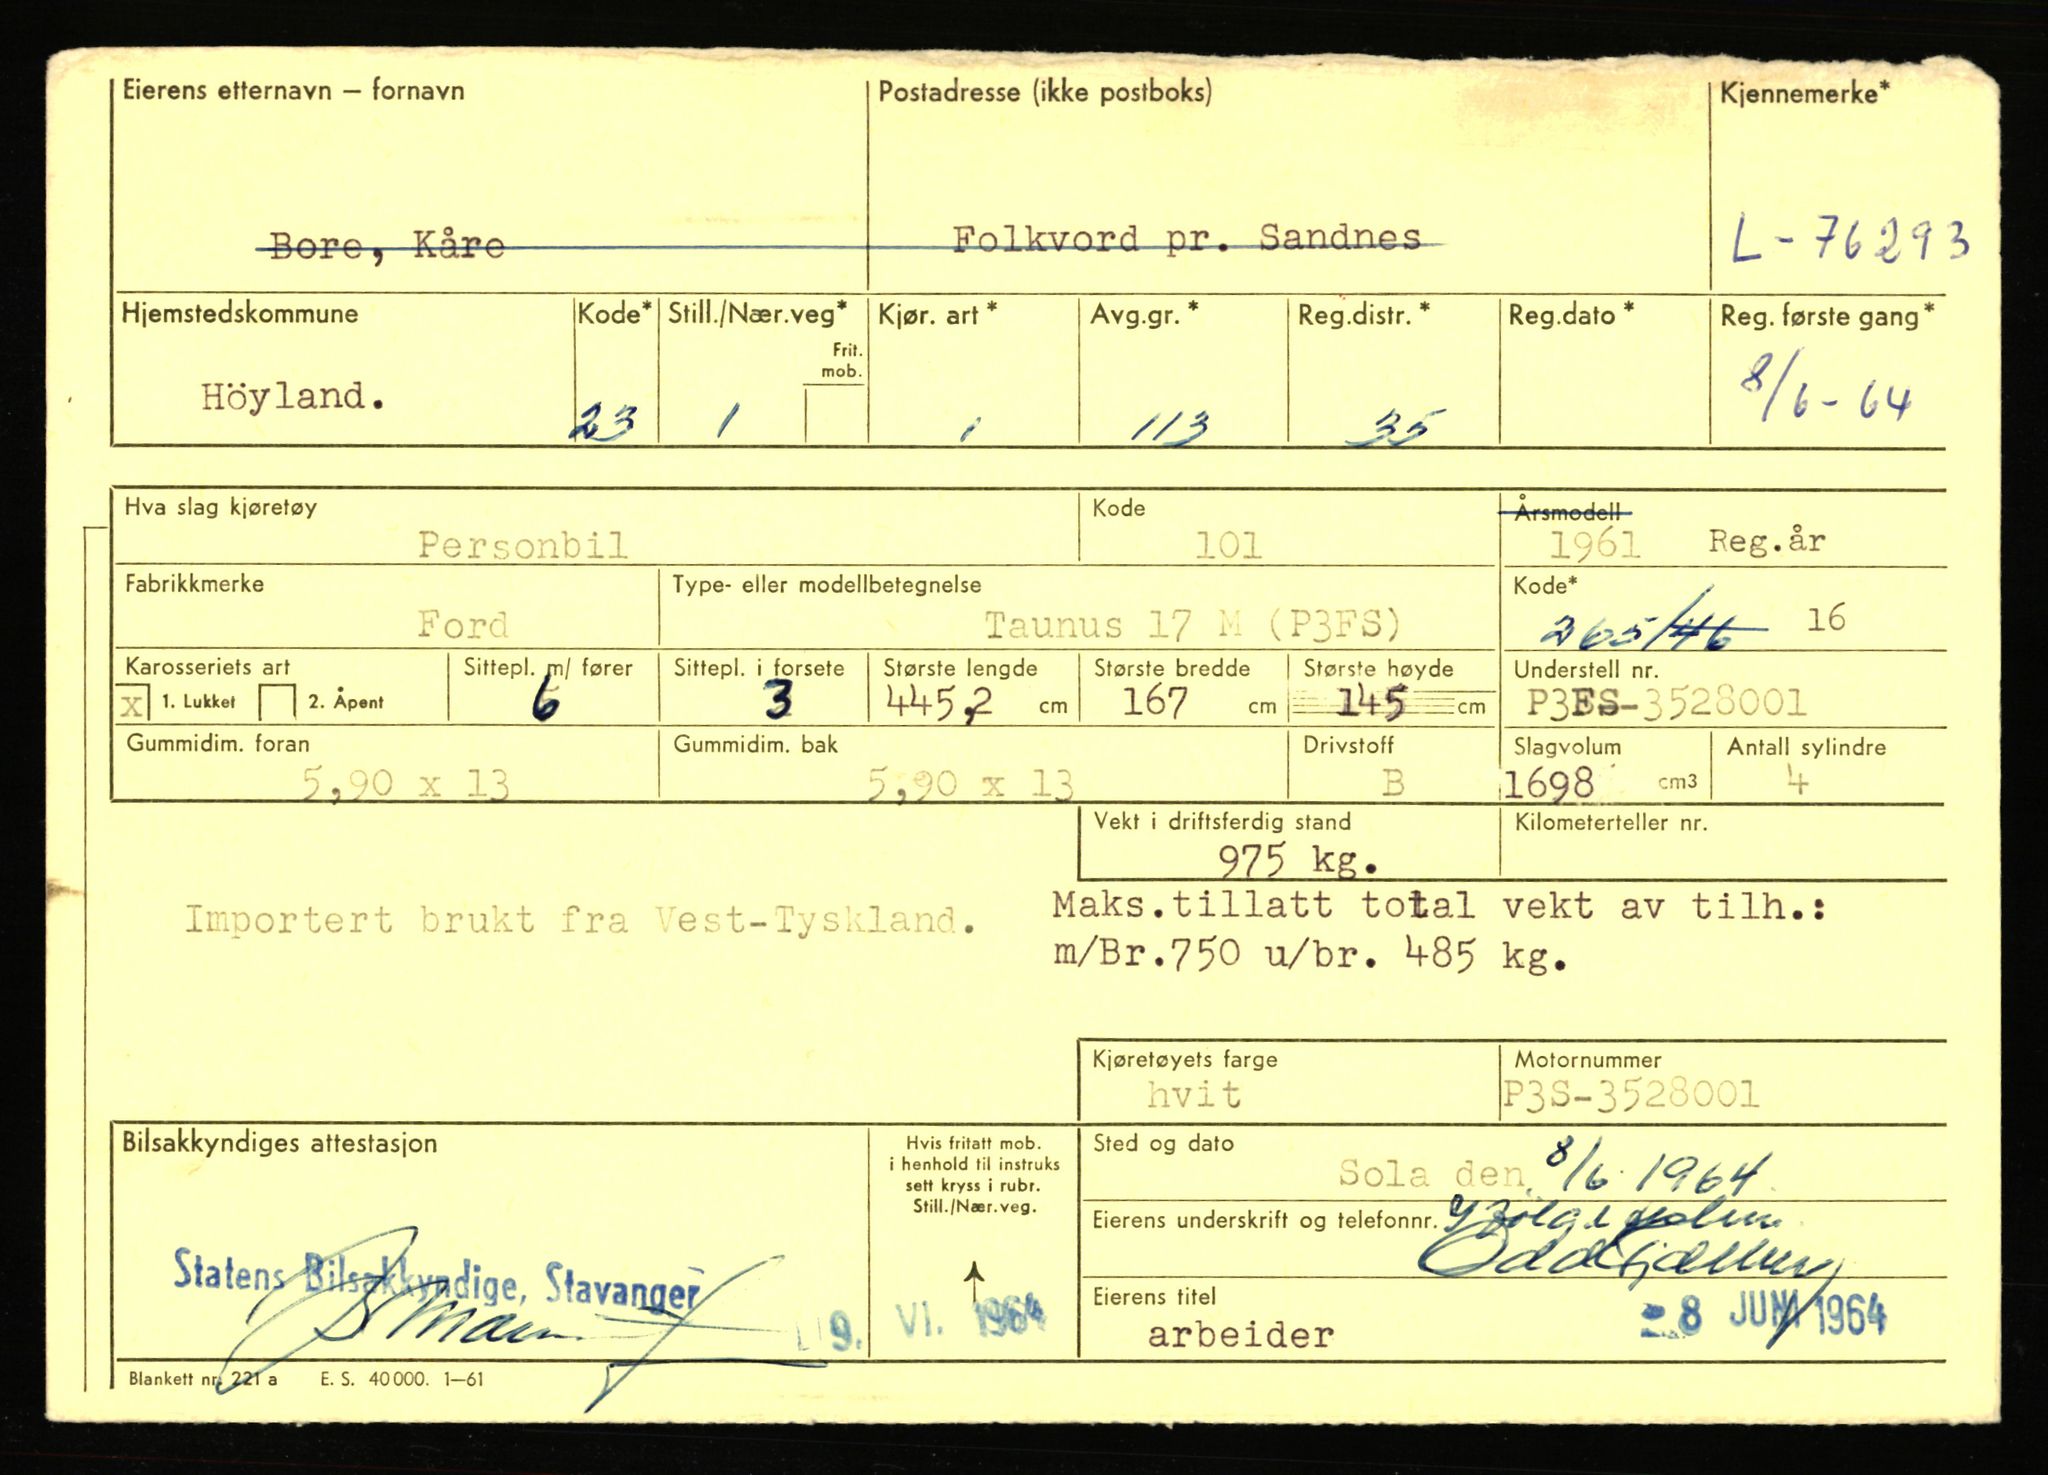 Eierens etternavn – fornavn
Postadresse (ikke postboks)
Kjennemerke*
Bore, Kåre
Folkvord pr. Sandnes
L-76293
Hjemstedskommune
Kode*
Still./Nær.veg*
Frit. mob.
Kjør. art*
Avg.gr.*
Reg.distr.*
Reg.dato*
Reg. første gang*
Höyland.
23
1
1
113
35
8/6-64
Hva slag kjøretøy
Kode
Årsmodell
Personbil
101
1961 Reg.år
Fabrikkmerke
Type- eller modellbetegnelse
Kode*
Ford
Taunus 17 M (P3FS)
265/46 16
Karosseriets art
Sittepl. m/ fører
Sittepl. i forsete
Største lengde
Største bredde
Største høyde
Understell nr.
x 1. Lukket 2. Åpent
6
3
445,2 cm
167 cm
145 cm
P3FS-3528001
Gummidim. foran
Gummidim. bak
Drivstoff
Slagvolum
Antall sylindre
5,90 x 13
5,90 x 13
B
1698 cm3
4
Vekt i driftsferdig stand
Kilometerteller nr.
975 kg.
Importert brukt fra Vest-Tyskland.
Maks.tillatt total vekt av tilh.:
m/Br.750 u/br. 485 kg.
Kjøretøyets farge
Motornummer
hvit
P3S-3528001
Bilsakkyndiges attestasjon
Hvis fritatt mob.
i henhold til instruks
sett kryss i rubr.
Still./Nær.veg.
Sted og dato
Sola den 8/6 1964
Eierens underskrift og telefonnr.
Statens Bilsakkyndige, Stavanger
9. VI. 1964
Eierens titel
arbeider
- 8 JUNI 1964
Blankett nr. 221 a E. S. 40 000. 1–61